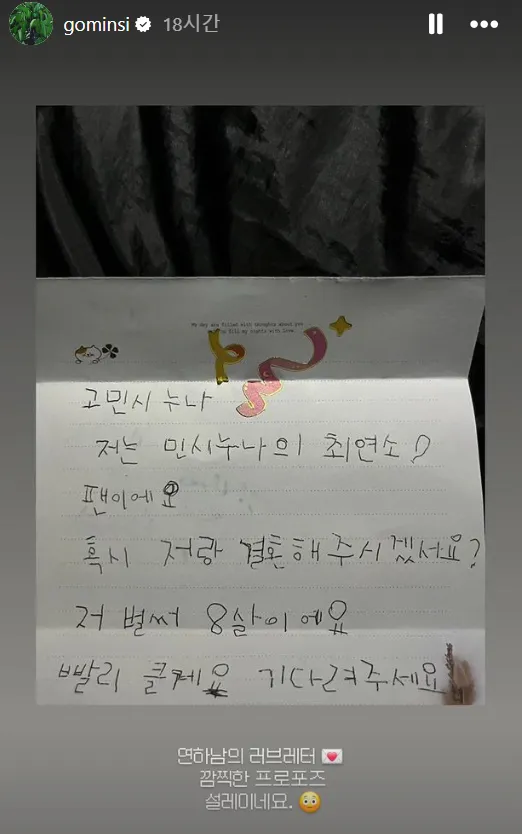 gominsi 18시간
My day are filled with thoughts about you
fill my nights with love.
고민시 누나
저는 민시누나의 최연소
팬이에요
혹시 저랑 결혼해주시겠서요?
저 벌써 8살이에요
빨리 클게요 기다려주세요
연하남의 러브레터 💌
깜찍한 프로포즈
설레이네요. 😳